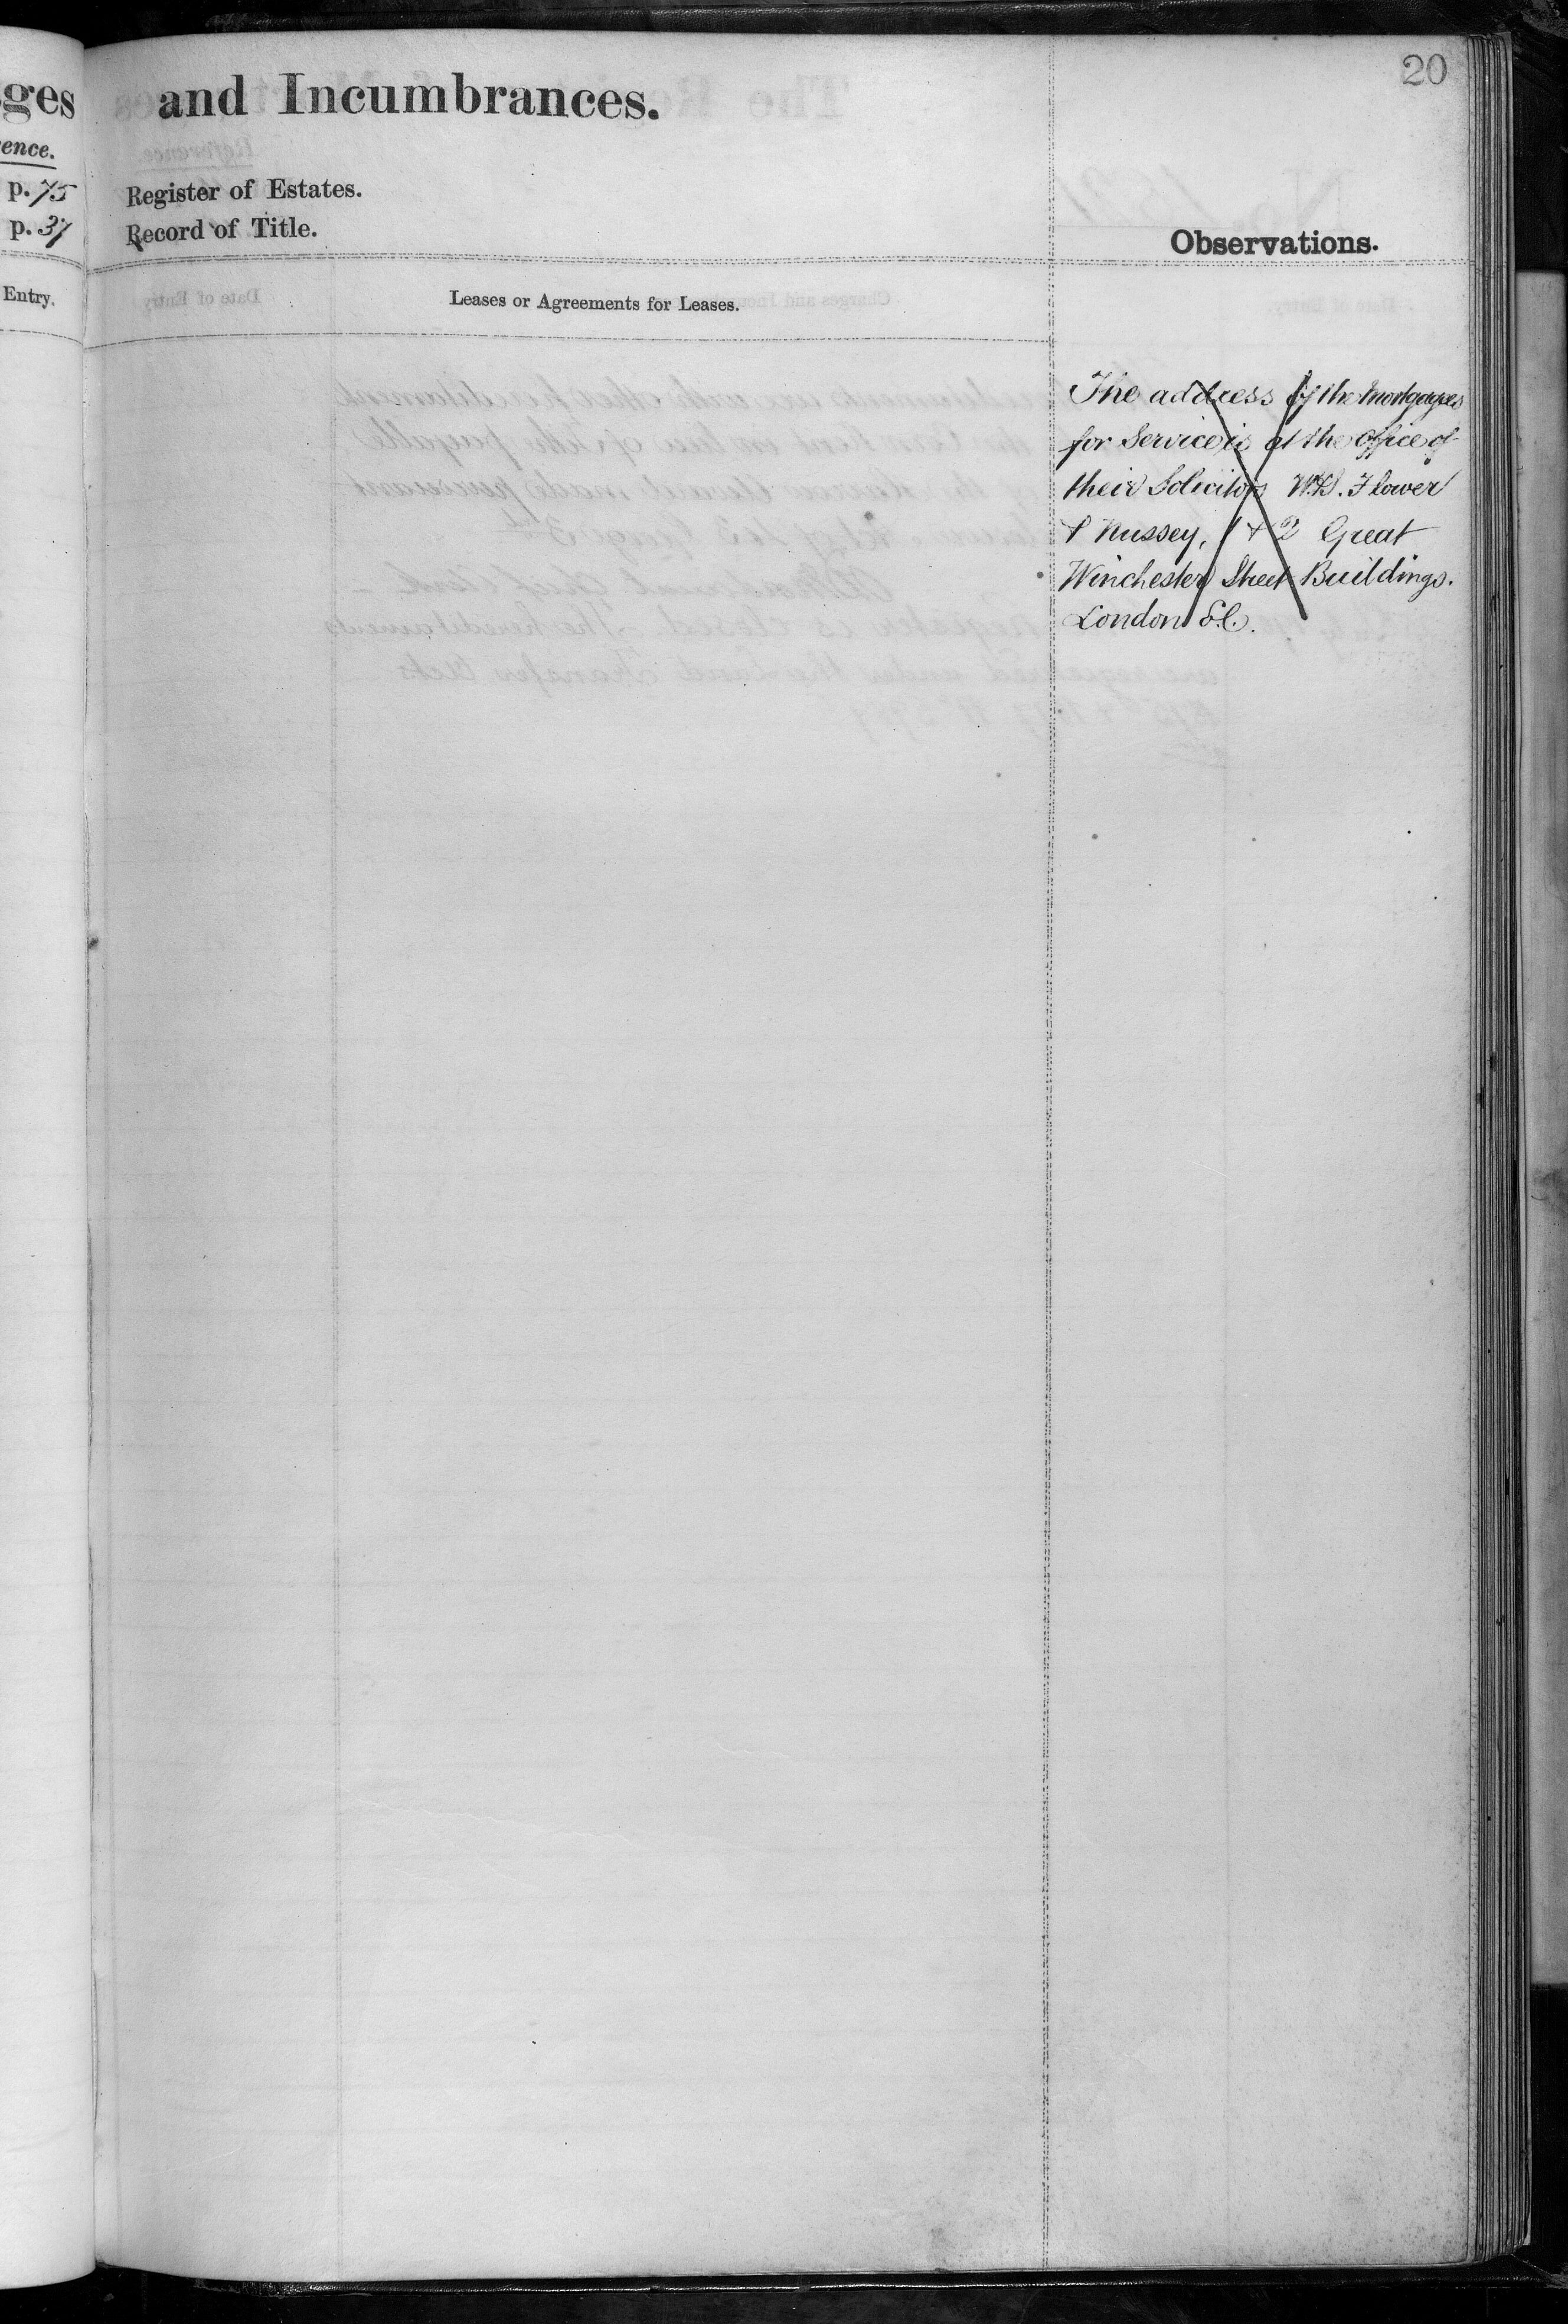 20
ges and Incumbrances.
ence.
p. 75 Register of Estates.
p. 37 Record of Title.
Observations.
Entry. Leases or Agreements for Leases.
The address of the Mortgagees
for Service is at the Office of
their Solicitors Flower
& Nussey, 1 & 2 Great
Winchester Street Buildings.
London E.C.